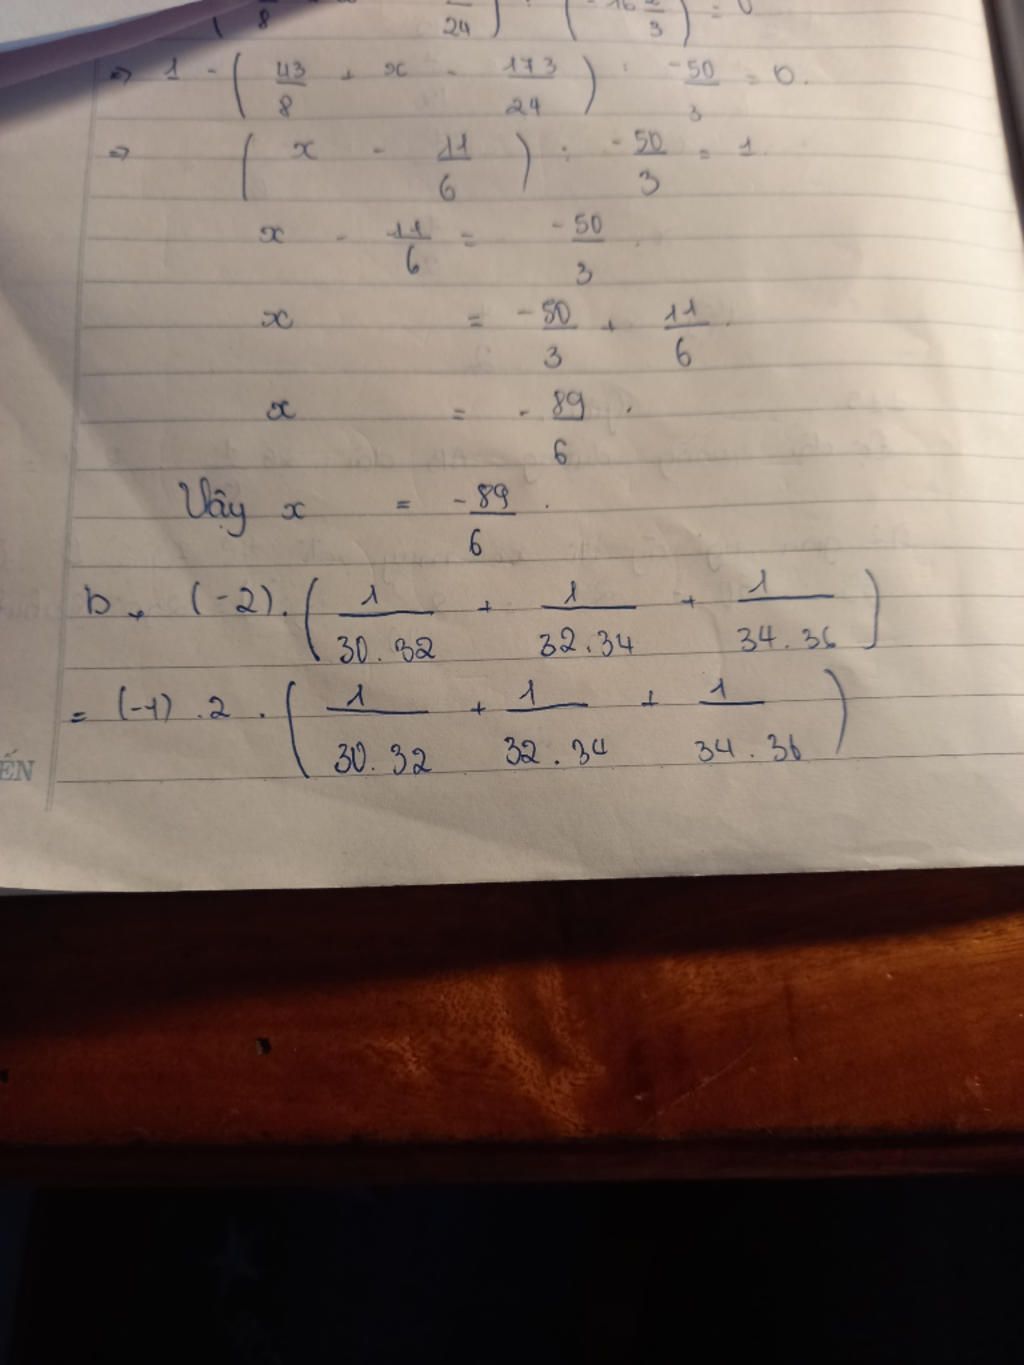 8 24 -16 2/3 = 0
=> 1 - ( 43/8 + x - 173/24 ) : -50/3 = 0.
=> ( x - 11/6 ) : -50/3 = 1.
x - 11/6 = -50/3.
x = -50/3 + 11/6.
x = - 89/6.
Vậy x = -89/6.
b, (-2).( 1/30.32 + 1/32.34 + 1/34.36 )
= (-1) .2 . ( 1/30.32 + 1/32.34 + 1/34.36 )
ẾN